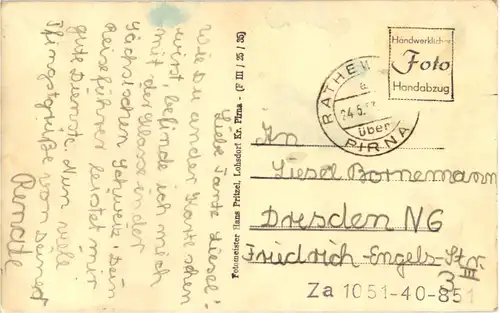 Liebe Tante Liesel!
Wie Du an der Karte schon
wirst, befinde ich mich
mit der Klasse in der
Sächsischen Schweiz. Dein
Reiseführer leistet mir
gute Dienste. Nun viele
Pfingstgrüße von Deiner
Renate
Fotomeister Hans Pritzel, Lohsdorf Kr. Pirna - (F III / 25 / 35)
RATHEW
a
24.5.
über
PIRNA
Handwerklicher
Foto
Handabzug
An
Liesel Bornemann
Dresden N6
Friedrich-Engels-Str.
3 III
Za 1051-40-851